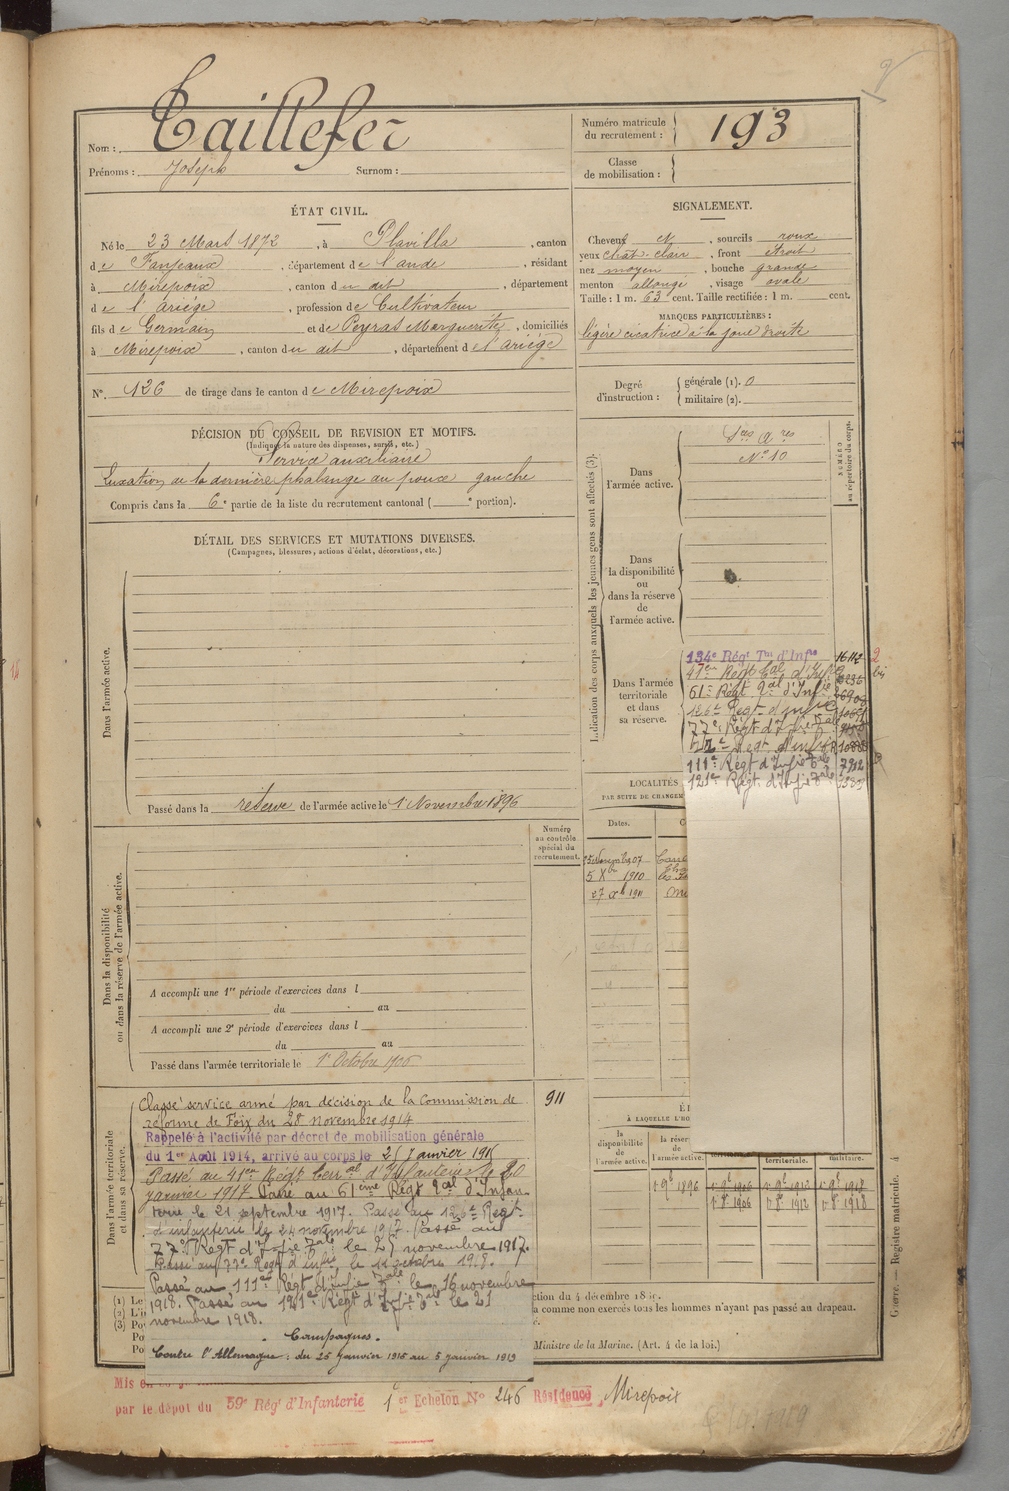 Nom : Taillefer
Prénoms : Joseph Surnom :
Numéro matricule du recrutement : 193
Classe de mobilisation :
ÉTAT CIVIL.
Né le 23 Mars 1872, à Plavilla, canton
de Fanjeaux, département de l'aude, résidant
à Mirepoix, canton du dit, département
de l'ariége, profession de Cultivateur
fils de Germain et de Peyras Marguerite, domiciliés
à Mirepoix, canton du dit, département de l'ariége
N° 126 de tirage dans le canton de Mirepoix
SIGNALEMENT.
Cheveux N, sourcils roux
yeux chat. clair, front étroit
nez moyen, bouche grande
menton allongé, visage ovale
Taille : 1 m. 63 cent. Taille rectifiée : 1 m. cent.
MARQUES PARTICULIÈRES :
légère cicatrice à la joue droite
Degré d'instruction : générale (1). 0
militaire (2).
DÉCISION DU CONSEIL DE REVISION ET MOTIFS.
(Indiquer la nature des dispenses, sursis, etc.)
Service auxiliaire
Luxation de la dernière phalange du pouce gauche
Compris dans la 6e partie de la liste du recrutement cantonal ( e portion).
DÉTAIL DES SERVICES ET MUTATIONS DIVERSES.
(Campagnes, blessures, actions d'éclat, décorations, etc.)
Dans l'armée active.
Passé dans la réserve de l'armée active le 1 Novembre 1896
Numéro au contrôle spécial du recrutement.
Dans la disponibilité ou dans la réserve de l'armée active.
A accompli une 1re période d'exercices dans l
du au
A accompli une 2e période d'exercices dans l
du au
Passé dans l'armée territoriale le 1er Octobre 1906
Dans l'armée territoriale et dans sa réserve.
Classé service armé par décision de la Commission de 911
réforme de Foix du 28 novembre 1914
Rappelé à l'activité par décret de mobilisation générale
du 1er Août 1914, arrivé au corps le 25 Janvier 1915
Passé au 41er Régt terral d'Infanterie le 20
janvier 1917 Passé au 61ème Régt tal d'Infan
terie le 21 septembre 1917. Passé au 126e Régt
d'infanterie le 24 novembre 1917. Passé au
77e Régt d'Infie tale le 27 novembre 1917.
Passé au 77e Régt d'infie, le 11 octobre 1918.
Passé au 111e Régt d'Infie tale le 16 novembre
1918. Passé au 121e Régt d'Infie tale le 21
novembre 1918.
Campagnes.
Contre l'Allemagne : du 25 Janvier 1915 au 5 janvier 1919
Indication des corps auxquels les jeunes gens sont affectés (3).
NUMÉRO au répertoire du corps.
Dans l'armée active.
N° 10
Dans la disponibilité ou dans la réserve de l'armée active.
Dans l'armée territoriale et dans sa réserve.
134e Régt Tal d'Infie 16112
111e Régt d'Infie tale 7912
121e Régt d'Infie tale
LOCALITÉS
Dates.
25 Novembre 07
5 Xbre 1910
27 Xb 1911
À LAQUELLE L'HO
la disponibilité de l'armée active.
la réser
l'armée active.
territoriale.
militaire.
1 9bre 1896
(1) Le
(2) L'i
(3) Po
Po
Po
ction du 4 décembre 18
a comme non exercés tous les hommes n'ayant pas passé au drapeau.
Ministre de la Marine. (Art. 4 de la loi.)
Guerre. — Registre matricule. 4
Mis e
par le dépot du 59e Régt d'Infanterie 1er Echelon N° 246 Résidence Mirepoix